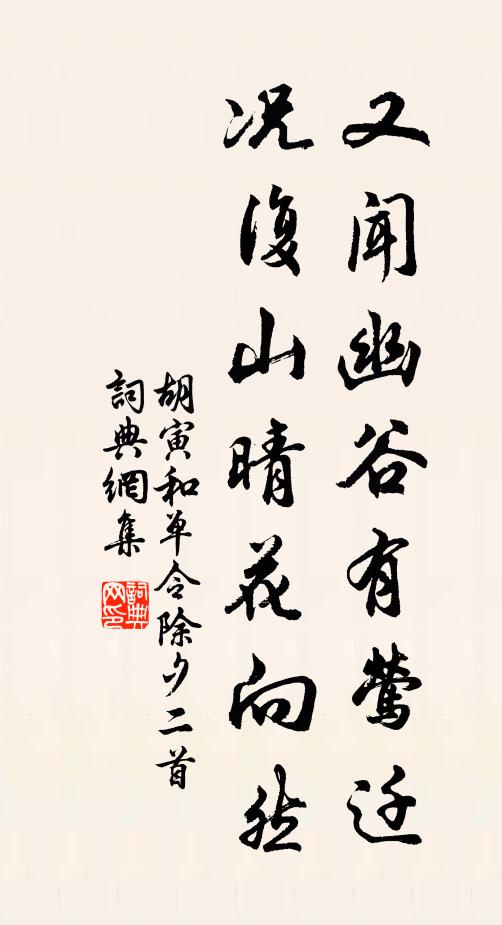 又聞幽谷有鶯迁
况復山晴花向然
胡寅和单令除夕二首
詞典網集
詞典网印